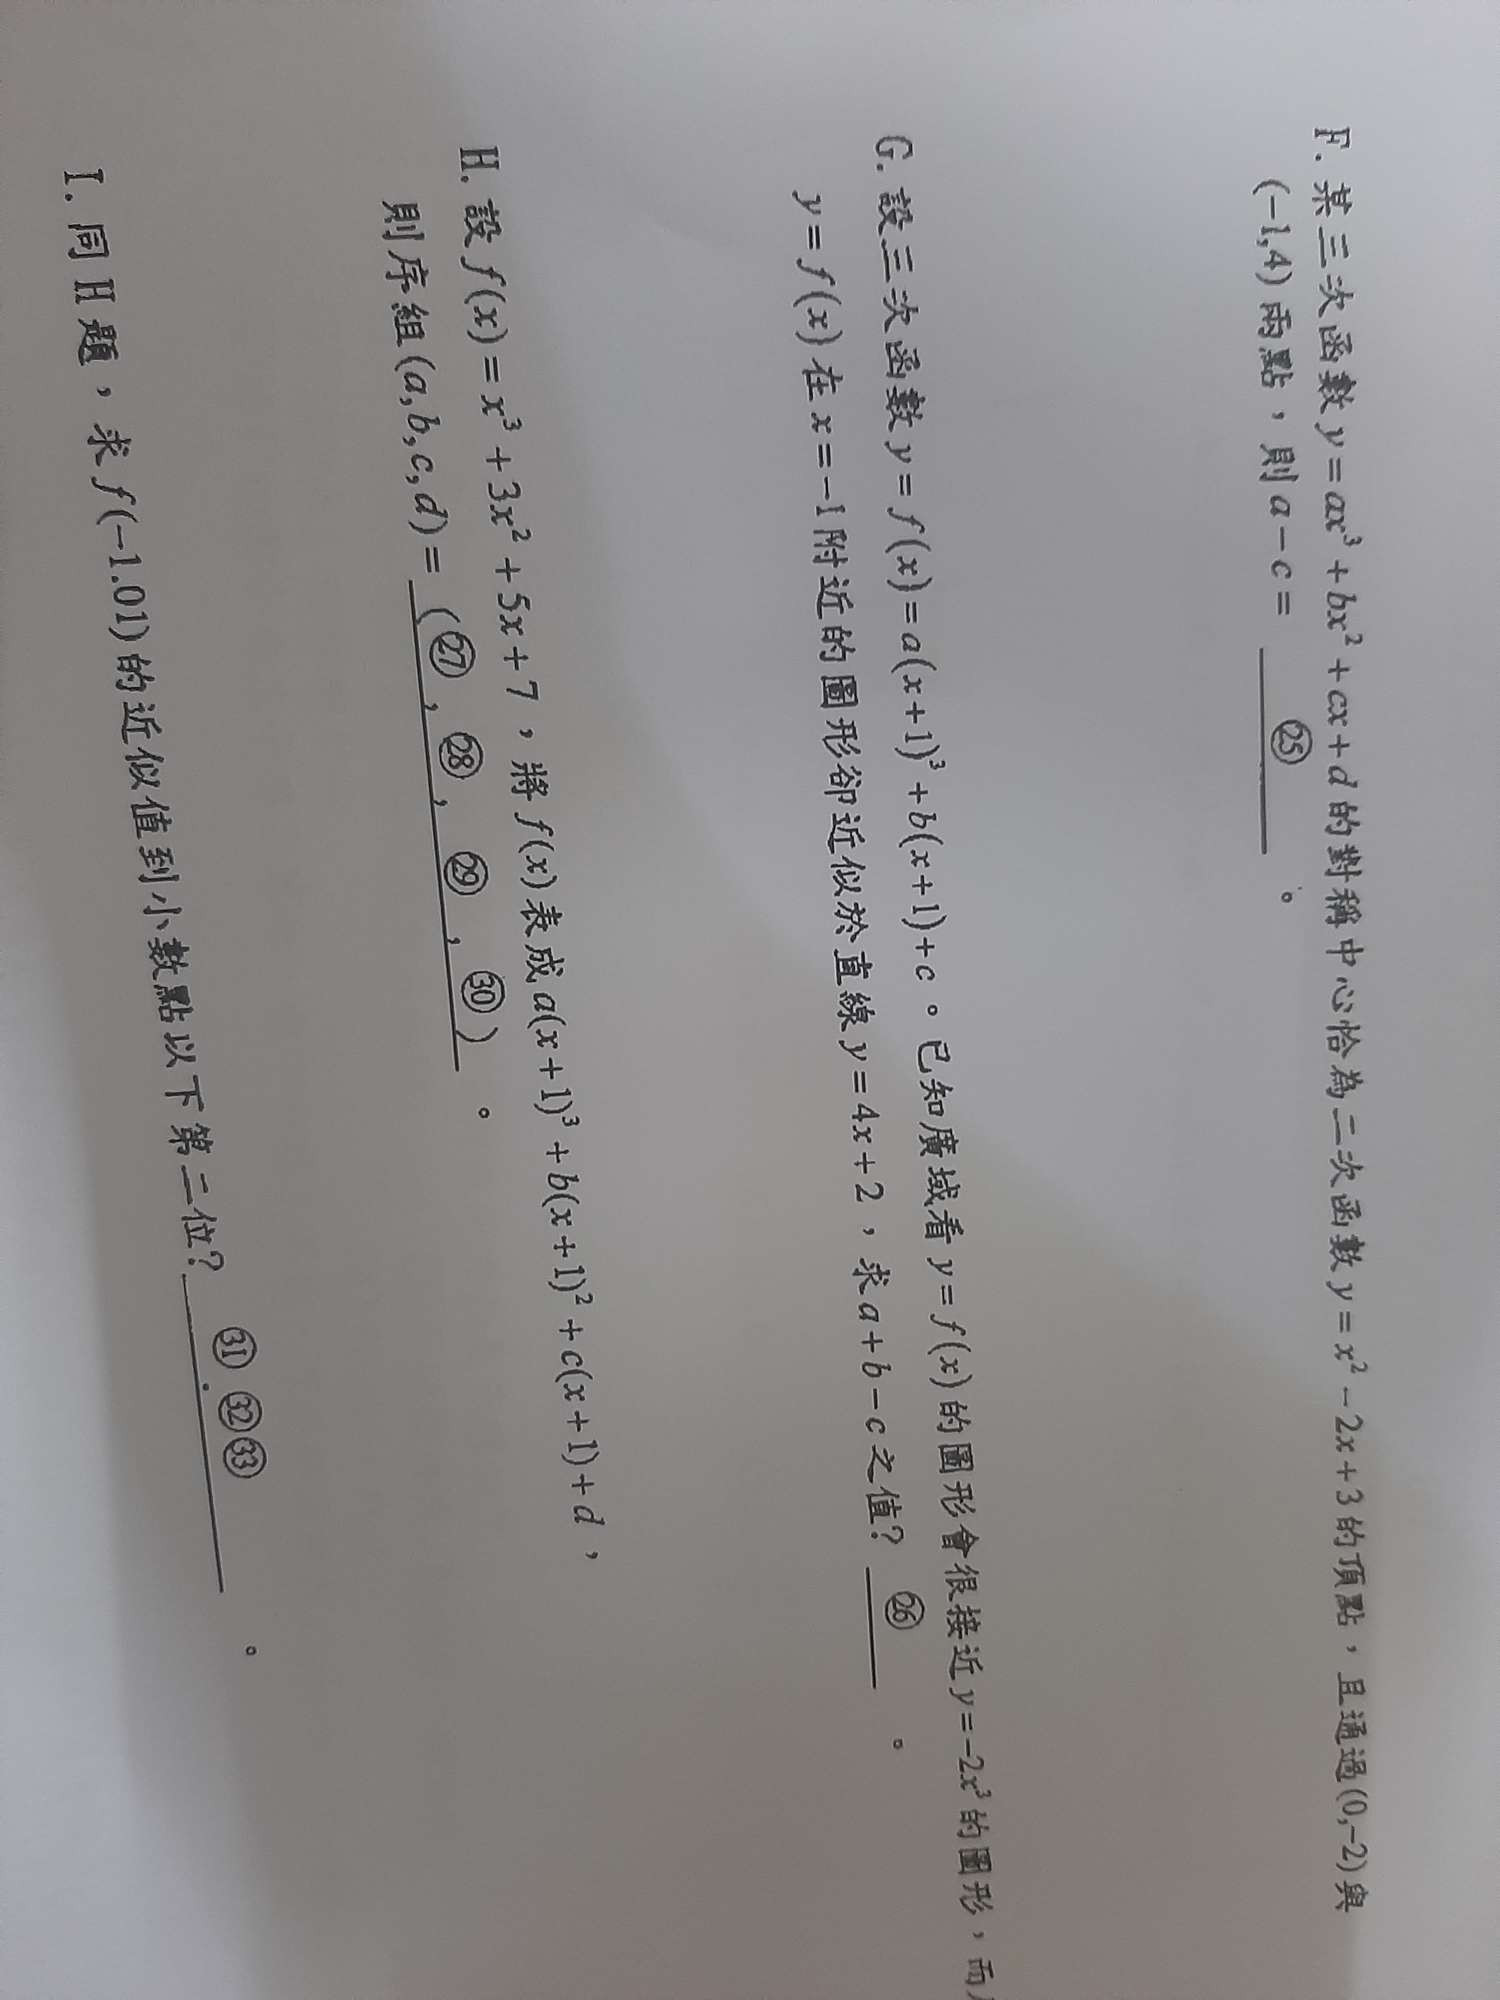 F. 某三次函數 y = ax³ + bx² + cx + d 的對稱中心恰為二次函數 y = x² − 2x + 3 的頂點，且通過(0,−2)與
(−1,4) 兩點，則 a − c = ㉕ 。
G. 設三次函數 y = f(x) = a(x+1)³ + b(x+1) + c。已知廣域看 y = f(x) 的圖形會很接近 y = −2x³ 的圖形，而
y = f(x) 在 x = −1 附近的圖形卻近似於直線 y = 4x + 2，求 a + b − c 之值? ㉖ 。
H. 設 f(x) = x³ + 3x² + 5x + 7，將 f(x) 表成 a(x+1)³ + b(x+1)² + c(x+1) + d，
則序組 (a,b,c,d) = (㉗ , ㉘ , ㉙ , ㉚) 。
I. 同 H 題，求 f(−1.01) 的近似值到小數點以下第二位? ㉛.㉜㉝ 。